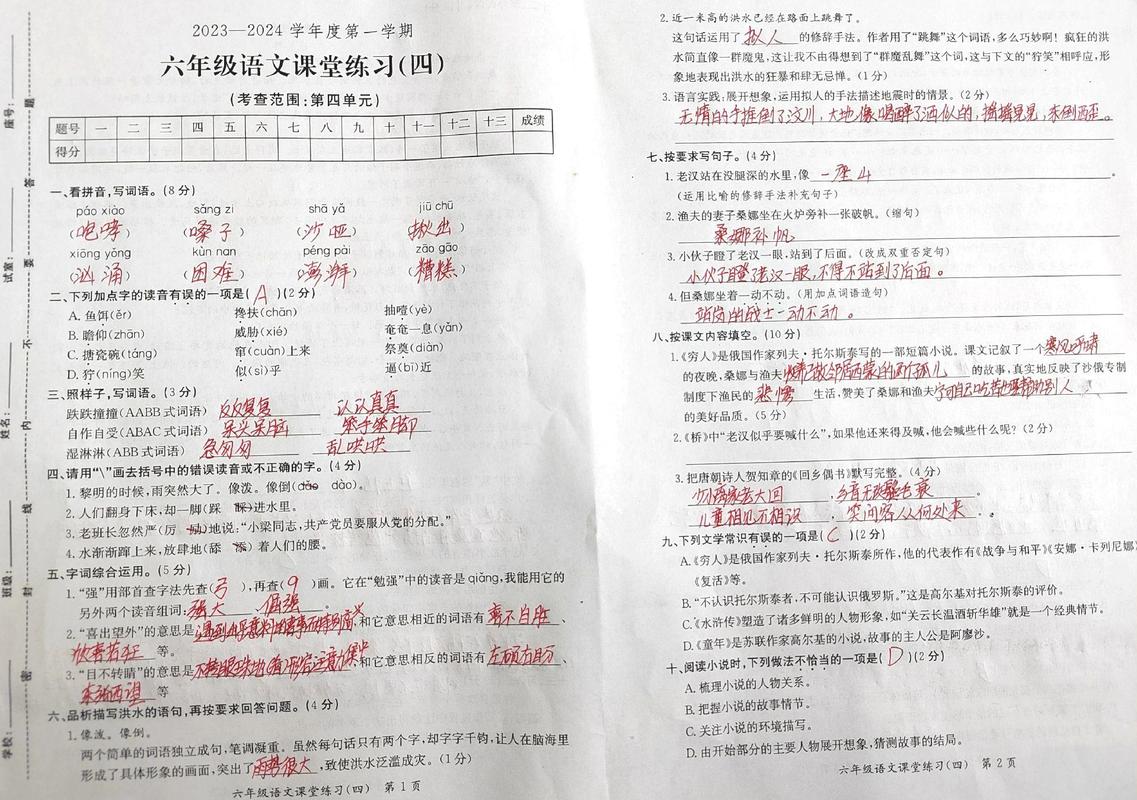 2023—2024 学年度第一学期
六年级语文课堂练习(四)
(考查范围:第四单元)
题号 一 二 三 四 五 六 七 八 九 十 十一 十二 十三 成绩
得分
一、看拼音,写词语。(8 分)
páo xiào sǎng zi shā yǎ jiū chū
(咆哮) (嗓子) (沙哑) (揪出)
xiōng yǒng kùn nan péng pài zāo gāo
(汹涌) (困难) (澎湃) (糟糕)
二、下列加点字的读音有误的一项是( A )(2 分)
A. 鱼饵(ěr) 搀扶(chān) 抽噎(yè)
B. 瞻仰(zhān) 威胁(xié) 奄奄一息(yǎn)
C. 搪瓷碗(táng) 窜(cuàn)上来 祭奠(diàn)
D. 狞(níng)笑 似(sì)乎 逼(bī)近
三、照样子,写词语。(3 分)
跌跌撞撞(AABB 式词语) 反反复复 认认真真
自作自受(ABAC 式词语) 呆头呆脑 笨手笨脚
湿淋淋(ABB 式词语) 急匆匆 乱哄哄
四、请用“\”画去括号中的错误读音或不正确的字。(4 分)
1. 黎明的时候,雨突然大了。像泼。像倒(dǎo dào)。
2. 人们翻身下床,却一脚(踩 )进水里。
3. 老班长忽然严(厉 励)地说:“小梁同志,共产党员要服从党的分配。”
4. 水渐渐蹿上来,放肆地(舔 )着人们的腰。
五、字词综合运用。(5 分)
1. “强”用部首查字法先查( 弓 ),再查( 9 )画。它在“勉强”中的读音是 qiǎng,我能用它的
另外两个读音组词:强大、倔强。
2. “喜出望外”的意思是遇到出乎意料的喜事而特别高兴和它意思相近的词语有喜不自胜、
欣喜若狂 等。
3. “目不转睛”的意思是不转眼珠地(看)形容注意力集中和它意思相反的词语有左顾右盼、
东张西望 等
六、品析描写洪水的语句,再按要求回答问题。(4 分)
1. 像泼。像倒。
两个简单的词语独立成句,笔调凝重。虽然每句话只有两个字,却字字千钧,让人在脑海里
形成了具体形象的画面,突出了雨势很大,致使洪水泛滥成灾。(1 分)
六年级语文课堂练习(四) 第 1 页
学校: 班级: 姓名: 试室: 座号:
密 封 线 内 不 要 答 题
2. 近一米高的洪水已经在路面上跳舞了。
这句话运用了拟人的修辞手法。作者用了“跳舞”这个词语,多么巧妙啊! 疯狂的洪
水简直像一群魔鬼,这让我不由得想到了“群魔乱舞”这个词,这与下文的“狞笑”相呼应,形
象地表现出洪水的狂暴和肆无忌惮。(1 分)
3. 语言实践:展开想象,运用拟人的手法描述地震时的情景。(2 分)
无情的手推倒了汶川,大地像喝醉了酒似的,摇摇晃晃,东倒西歪。
七、按要求写句子。(4 分)
1. 老汉站在没腿深的水里,像 一座山。
(运用比喻的修辞手法补充句子)
2. 渔夫的妻子桑娜坐在火炉旁补一张破帆。(缩句)
桑娜补帆
3. 小伙子瞪了老汉一眼,站到了后面。(改成双重否定句)
小伙子瞪老汉一眼,不得不站到了后面。
4. 但桑娜坐着一动不动。(用加点词语造句)
站岗的战士一动不动。
八、按课文内容填空。(10 分)
1.《穷人》是俄国作家列夫·托尔斯泰写的一部短篇小说。课文记叙了一个寒风呼啸
的夜晚,桑娜与渔夫邻居西蒙的两个孤儿 的故事,真实地反映了沙俄专制
制度下渔民的悲惨生活,赞美了桑娜和渔夫宁可自己吃苦也要帮助别人
的美好品质。(5 分)
2.《桥》中“老汉似乎要喊什么”,如果他还来得及喊,他会喊些什么呢? (2 分)
3. 把唐朝诗人贺知章的《回乡偶书》默写完整。(4 分)
少小离家老大回,乡音无改鬓毛衰。
儿童相见不相识,笑问客从何处来。
九、下列文学常识有误的一项是( C )(2 分)
A.《穷人》是俄国作家列夫·托尔斯泰所作,他的代表作有《战争与和平》《安娜·卡列尼娜》
《复活》等。
B. “不认识托尔斯泰者,不可能认识俄罗斯。”这是高尔基对托尔斯泰的评价。
C.《水浒传》塑造了诸多鲜明的人物形象,如“关云长温酒斩华雄”就是一个经典情节。
D.《童年》是苏联作家高尔基的小说,故事的主人公是阿廖沙。
十、阅读小说时,下列做法不恰当的一项是( D )(2 分)
A. 梳理小说的人物关系。
B. 把握小说的故事情节。
C. 关注小说的环境描写。
D. 由开始部分的主要人物展开想象,猜测故事的结局。
六年级语文课堂练习(四) 第 2 页